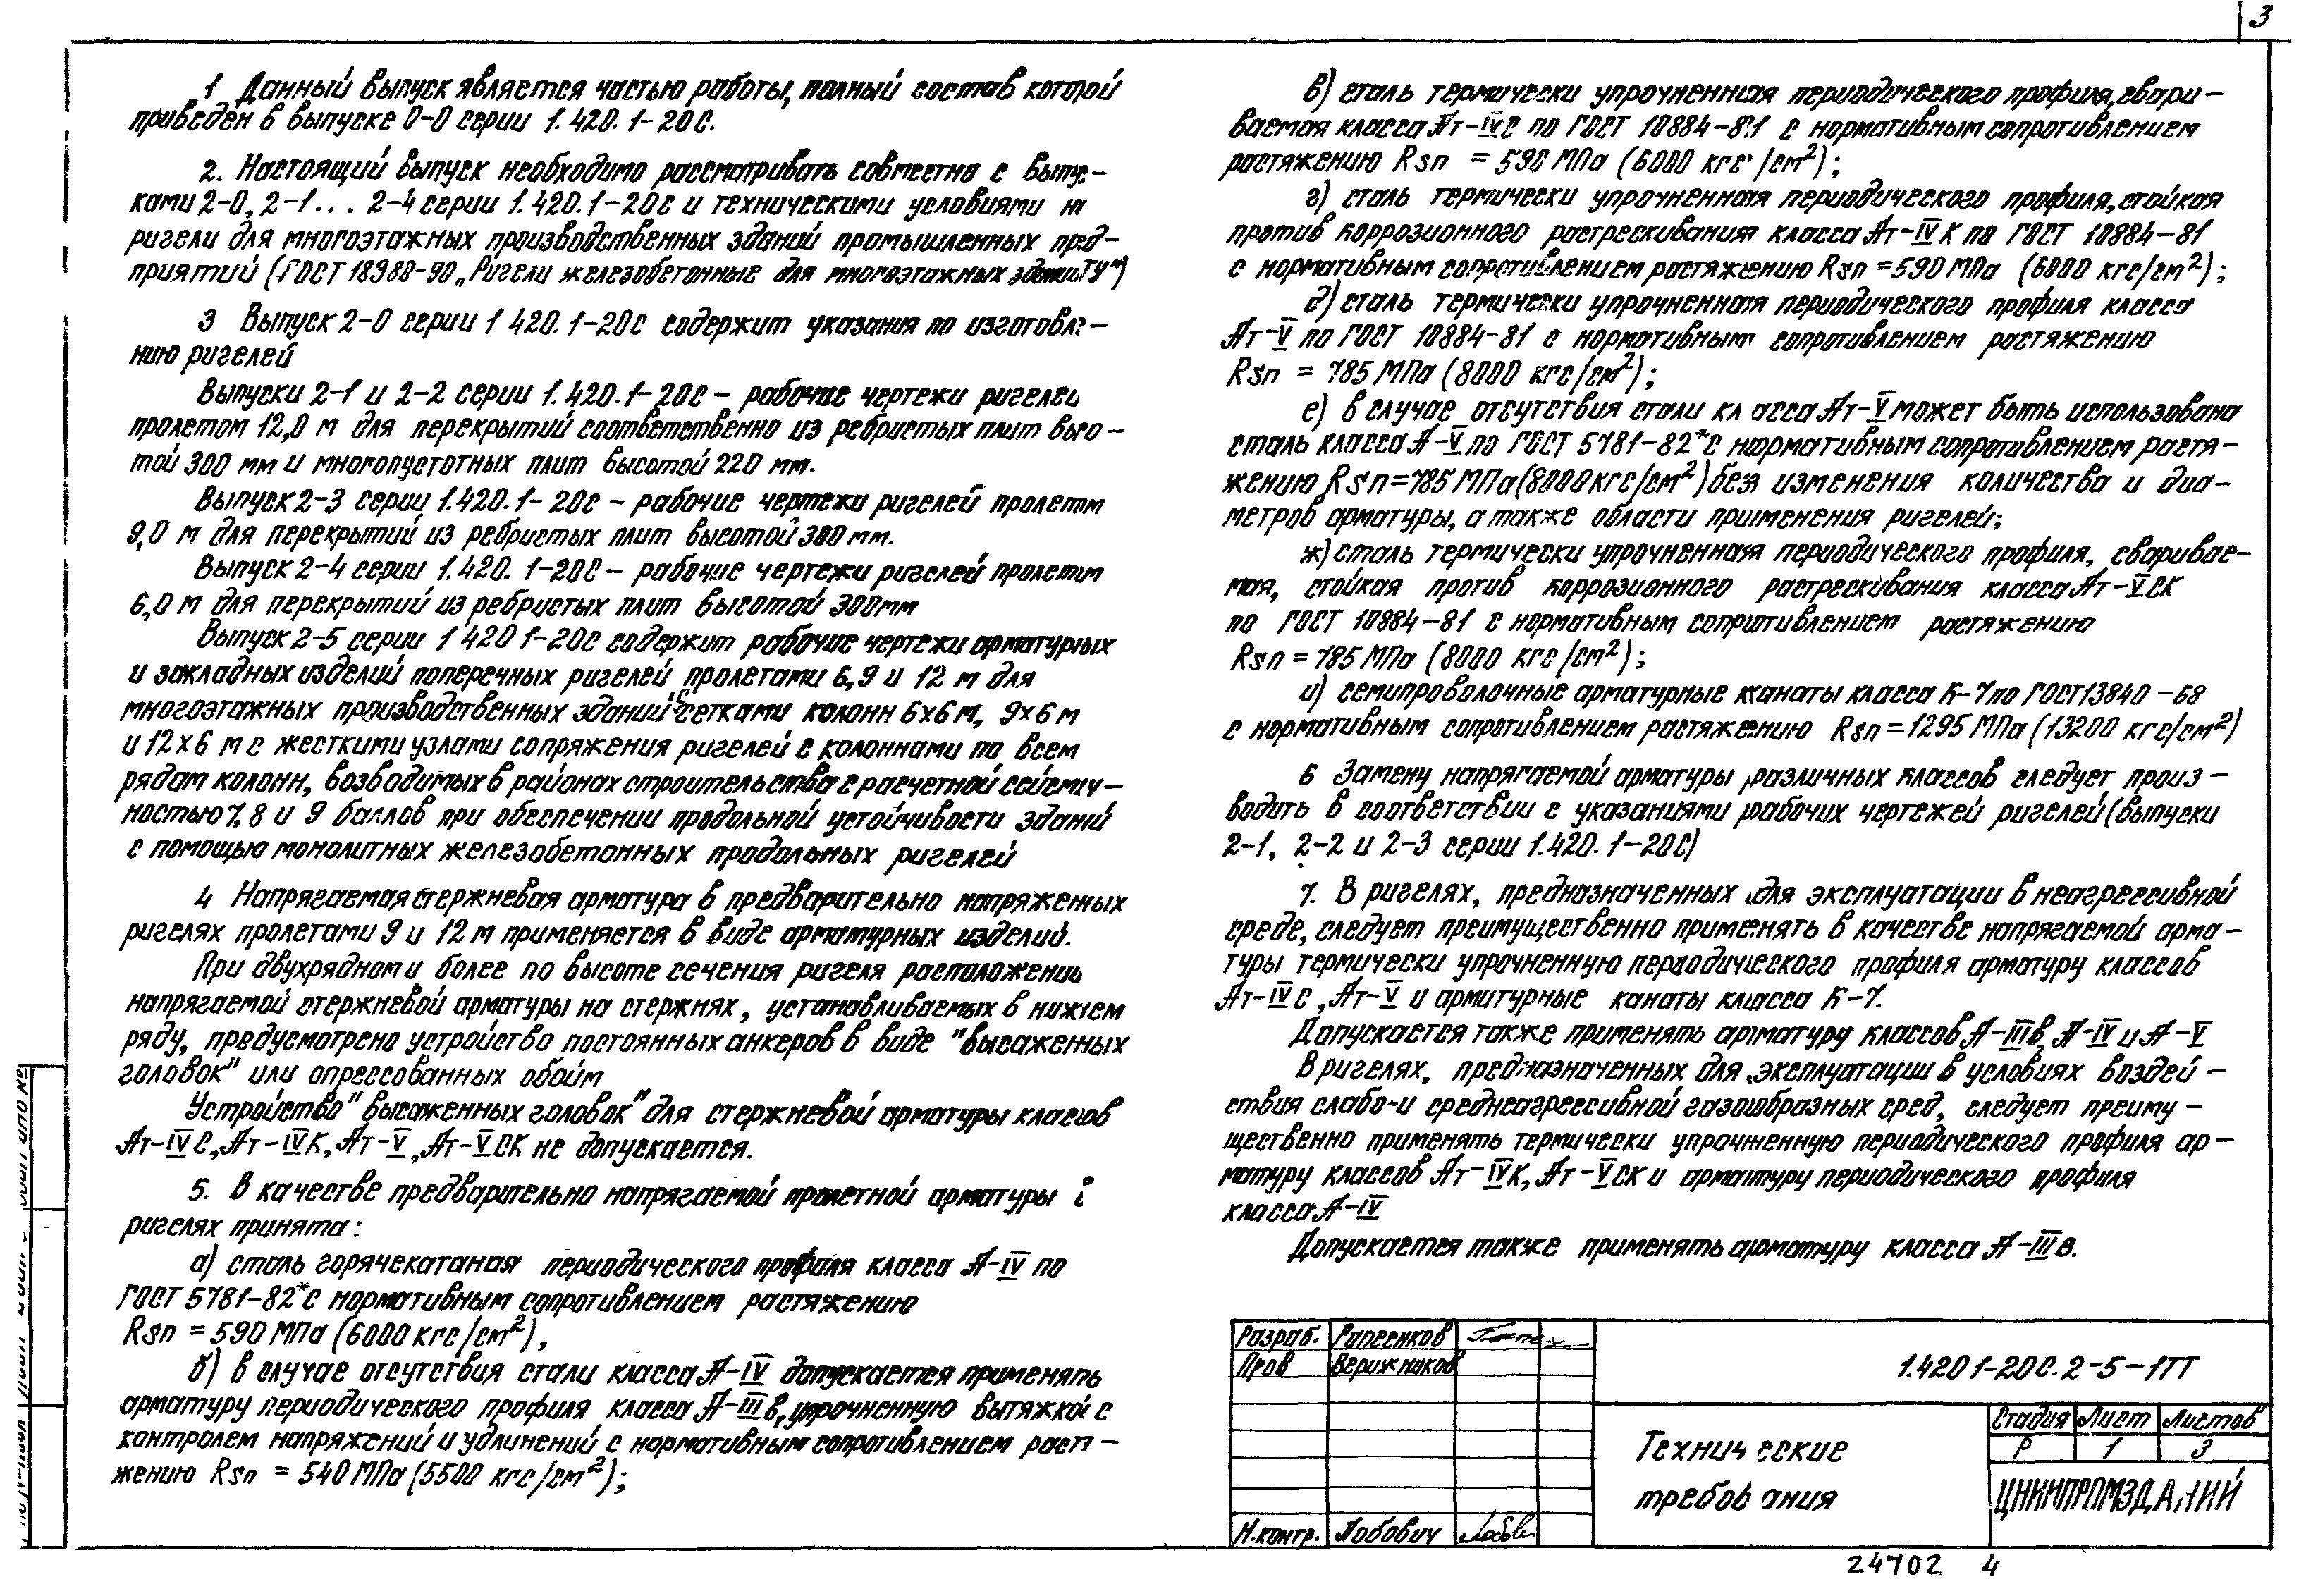 3
1 Данный выпуск является частью работы, полный состав которой
приведён в выпуске 0-0 серии 1.420.1-20С.
2. Настоящий выпуск необходимо рассматривать совместно с выпус-
ками 2-0, 2-1... 2-4 серии 1.420.1-20С и техническими условиями на
ригели для многоэтажных производственных зданий промышленных пред-
приятий (ГОСТ 18980-90 „Ригели железобетонные для многоэтажных зданий ТУ")
3 Выпуск 2-0 серии 1 420.1-20С содержит указания по изготовле-
нию ригелей
Выпуски 2-1 и 2-2 серии 1.420.1-20С - рабочие чертежи ригелей
пролетом 12,0 м для перекрытий соответственно из ребристых плит высо-
той 300 мм и многопустотных плит высотой 220 мм.
Выпуск 2-3 серии 1.420.1-20С - рабочие чертежи ригелей пролетом
9,0 м для перекрытий из ребристых плит высотой 300 мм.
Выпуск 2-4 серии 1.420.1-20С - рабочие чертежи ригелей пролетом
6,0 м для перекрытий из ребристых плит высотой 300мм
Выпуск 2-5 серии 1 420 1-20С содержит рабочие чертежи арматурных
и закладных изделий поперечных ригелей пролетами 6, 9 и 12 м для
многоэтажных производственных зданий с сетками колонн 6х6 м, 9х6 м
и 12х6 м с жесткими узлами сопряжения ригелей с колоннами по всем
рядам колонн, возводимых в районах строительства с расчетной сейсмич-
ностью 7, 8 и 9 баллов при обеспечении продольной устойчивости зданий
с помощью монолитных железобетонных продольных ригелей
4 Напрягаемая стержневая арматура в предварительно напряженных
ригелях пролетами 9 и 12 м применяется в виде арматурных изделий.
При двухрядном и более по высоте сечения ригеля расположении
напрягаемой стержневой арматуры на стержнях, устанавливаемых в нижнем
ряду, предусмотрено устройство постоянных анкеров в виде "высаженных
головок" или опрессованных обойм
Устройство "высаженных головок" для стержневой арматуры классов
Ат-IVС, Ат-IVК, Ат-V, Ат-VСК не допускается.
5. В качестве предварительно напрягаемой пролетной арматуры в
ригелях принята:
а) сталь горячекатаная периодического профиля класса А-IV по
ГОСТ 5781-82* с нормативным сопротивлением растяжению
Rsn = 590 МПа (6000 кгс/см²),
б) в случае отсутствия стали класса А-IV допускается применять
арматуру периодического профиля класса А-IIIв, упрочненную вытяжкой с
контролем напряжений и удлинений, с нормативным сопротивлением растя-
жению Rsn = 540 МПа (5500 кгс/см²);
в) сталь термически упрочненная периодического профиля, свари-
ваемая класса Ат-IVС по ГОСТ 10884-81 с нормативным сопротивлением
растяжению Rsn = 590 МПа (6000 кгс/см²);
г) сталь термически упрочненная периодического профиля, стойкая
против коррозионного растрескивания класса Ат-IVК по ГОСТ 10884-81
с нормативным сопротивлением растяжению Rsn = 590 МПа (6000 кгс/см²);
д) сталь термически упрочненная периодического профиля класса
Ат-V по ГОСТ 10884-81 с нормативным сопротивлением растяжению
Rsn = 785 МПа (8000 кгс/см²);
е) в случае отсутствия стали класса Ат-V может быть использована
сталь класса А-V по ГОСТ 5781-82* с нормативным сопротивлением растя-
жению Rsn = 785 МПа (8000 кгс/см²) без изменения количества и диа-
метров арматуры, а также области применения ригелей;
ж) сталь термически упрочненная периодического профиля, сваривае-
мая, стойкая против коррозионного растрескивания класса Ат-VСК
по ГОСТ 10884-81 с нормативным сопротивлением растяжению
Rsn = 785 МПа (8000 кгс/см²);
и) семипроволочные арматурные канаты класса К-7 по ГОСТ 13840-68
с нормативным сопротивлением растяжению Rsn = 1295 МПа (13200 кгс/см²)
6 Замену напрягаемой арматуры различных классов следует произ-
водить в соответствии с указаниями рабочих чертежей ригелей (выпуски
2-1, 2-2 и 2-3 серии 1.420.1-20С)
7. В ригелях, предназначенных для эксплуатации в неагрессивной
среде, следует преимущественно применять в качестве напрягаемой арма-
туры термически упрочненную периодического профиля арматуру классов
Ат-IVС, Ат-V и арматурные канаты класса К-7.
Допускается также применять арматуру классов А-IIIв, А-IV и А-V
В ригелях, предназначенных для эксплуатации в условиях воздей-
ствия слабо-и среднеагрессивной газообразных сред, следует преиму-
щественно применять термически упрочненную периодического профиля ар-
матуру классов Ат-IVК, Ат-VСК и арматуру периодического профиля
класса А-IV
Допускается также применять арматуру класса А-IIIв.
Разраб. Рапеенков
Пров Верижников
Н.контр. Лобович
1.420 1-20С.2-5-1ТТ
Технические
требования
Стадия Лист Листов
Р 1 3
ЦНИИПРОМЗДАНИЙ
24702 4